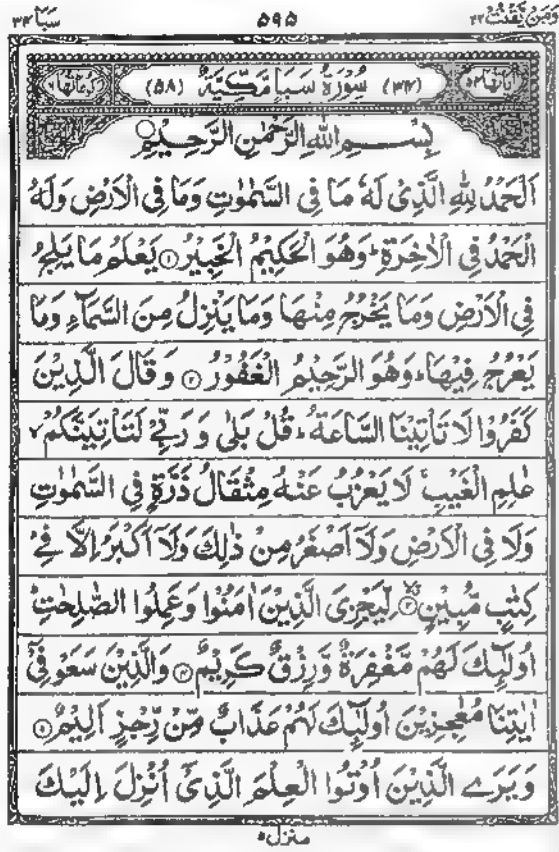 وَمَنْ يَّقْنُتْ ٢٢ ٥٩٥ سَبَا ٣٤
اٰيَاتُهَا ٥٤ (٣٤) سُوْرَةُ سَبَاٍ مَّكِّيَّةٌ (٥٨) رُكُوْعَاتُهَا ٦
بِسْمِ اللهِ الرَّحْمٰنِ الرَّحِيْمِ
اَلْحَمْدُ لِلّٰهِ الَّذِىْ لَهٗ مَا فِى السَّمٰوٰتِ وَمَا فِى الْاَرْضِ وَلَهُ
الْحَمْدُ فِى الْاٰخِرَةِ ؕ وَهُوَ الْحَكِيْمُ الْخَبِيْرُ ۝١ يَعْلَمُ مَا يَلِجُ
فِى الْاَرْضِ وَمَا يَخْرُجُ مِنْهَا وَمَا يَنْزِلُ مِنَ السَّمَآءِ وَمَا
يَعْرُجُ فِيْهَا ؕ وَهُوَ الرَّحِيْمُ الْغَفُوْرُ ۝٢ وَقَالَ الَّذِيْنَ
كَفَرُوْا لَا تَاْتِيْنَا السَّاعَةُ ؕ قُلْ بَلٰى وَرَبِّىْ لَتَاْتِيَنَّكُمْ ۙ
عٰلِمِ الْغَيْبِ ۚ لَا يَعْزُبُ عَنْهُ مِثْقَالُ ذَرَّةٍ فِى السَّمٰوٰتِ
وَلَا فِى الْاَرْضِ وَلَآ اَصْغَرُ مِنْ ذٰلِكَ وَلَآ اَكْبَرُ اِلَّا فِىْ
كِتٰبٍ مُّبِيْنٍ ۝٣ لِّيَجْزِىَ الَّذِيْنَ اٰمَنُوْا وَعَمِلُوا الصّٰلِحٰتِ ؕ
اُولٰٓئِكَ لَهُمْ مَّغْفِرَةٌ وَّرِزْقٌ كَرِيْمٌ ۝٤ وَالَّذِيْنَ سَعَوْ فِىْٓ
اٰيٰتِنَا مُعٰجِزِيْنَ اُولٰٓئِكَ لَهُمْ عَذَابٌ مِّنْ رِّجْزٍ اَلِيْمٌ ۝٥
وَيَرَى الَّذِيْنَ اُوْتُوا الْعِلْمَ الَّذِىْٓ اُنْزِلَ اِلَيْكَ
منزل ٥